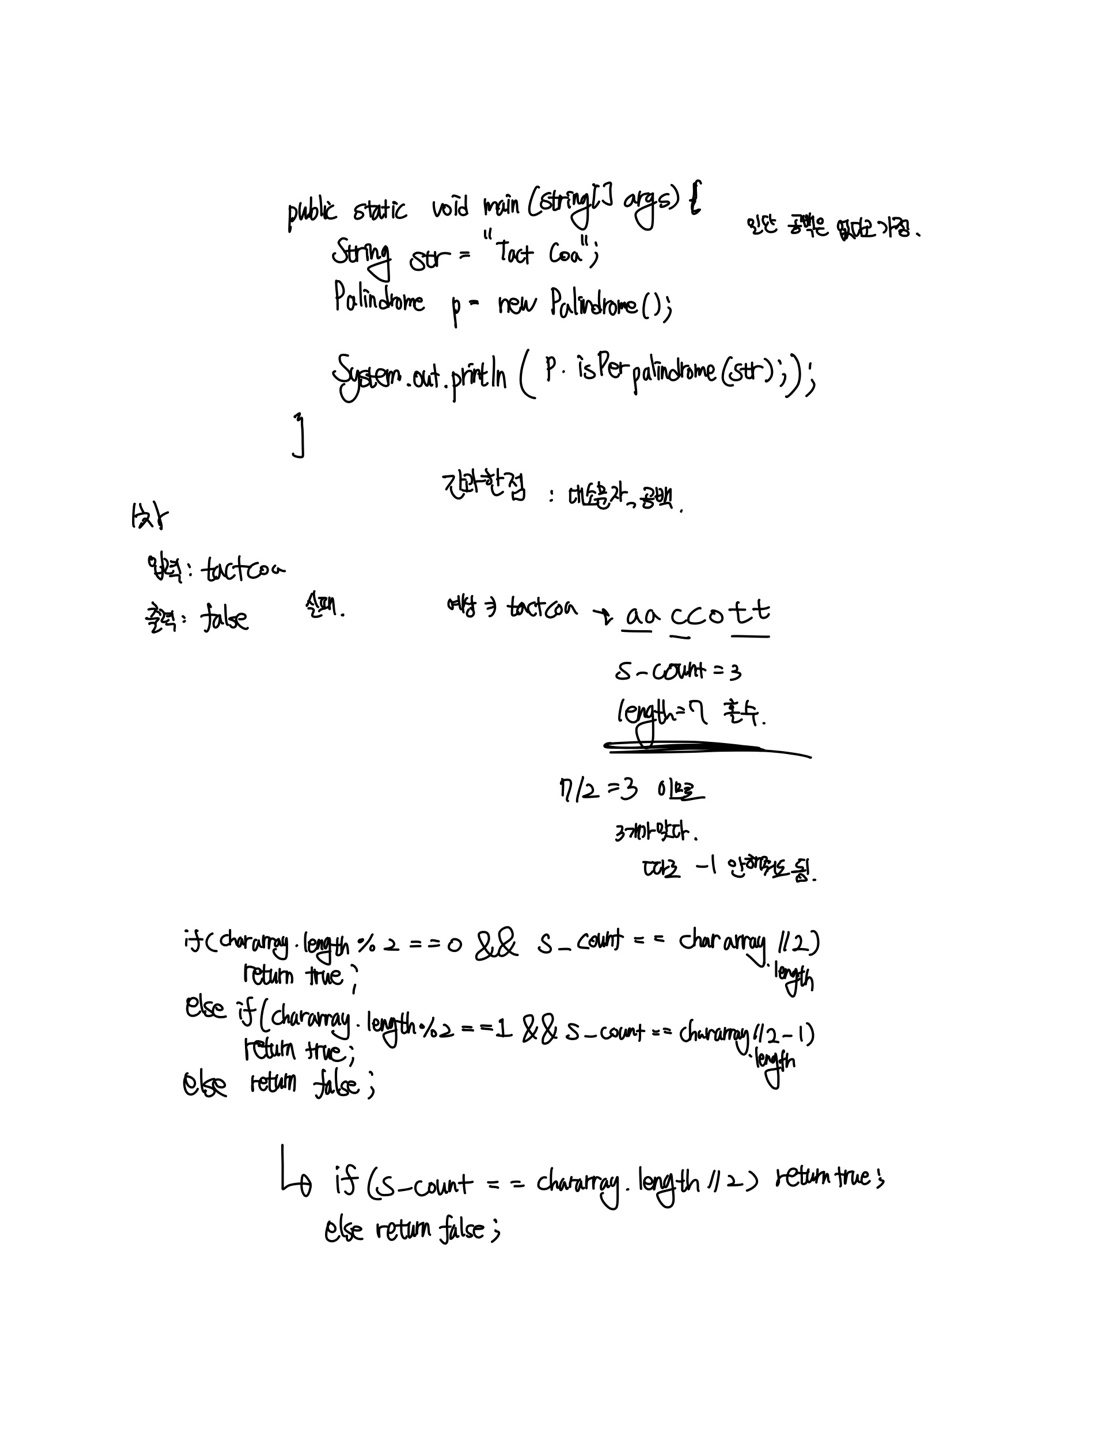 public static void main (string[] args) {
일단 공백은 없다고 가정.
String str = "Tact Coa";
Palindrome p = new Palindrome();
System.out.println ( p. isPerpalindrome(str););
}
간과한점 : 대소문자, 공백.
1차
입력: tactcoa
출력: false 실패.
예상 → tactcoa → aa cco tt
s-count = 3
length = 7 홀수.
7/2 = 3 이므로
3개가 맞다.
따로 -1 안해줘도 됨.
if(chararray.length % 2 == 0 && s_count == chararray.length //2)
return true;
else if(chararray.length%2 == 1 && s_count == chararray.length //2-1)
return true;
else return false;
↳ if (s-count == chararray.length //2) return true;
else return false;